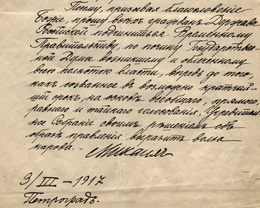 Посему, призывая благословение
Божие, прошу всех граждан Державы
Российской подчиниться Временному
Правительству, по почину Государствен-
ной Думы возникшему и облеченному
всею полнотою власти, впредь до того,
как созванное в возможно кратчай-
ший срок, на основе всеобщаго, прямого,
равнаго и тайнаго голосования, Учредитель-
ное Собрание своим решением об
образе правления выразит волю
народа.
Михаил
3/III – 1917
Петроградъ.